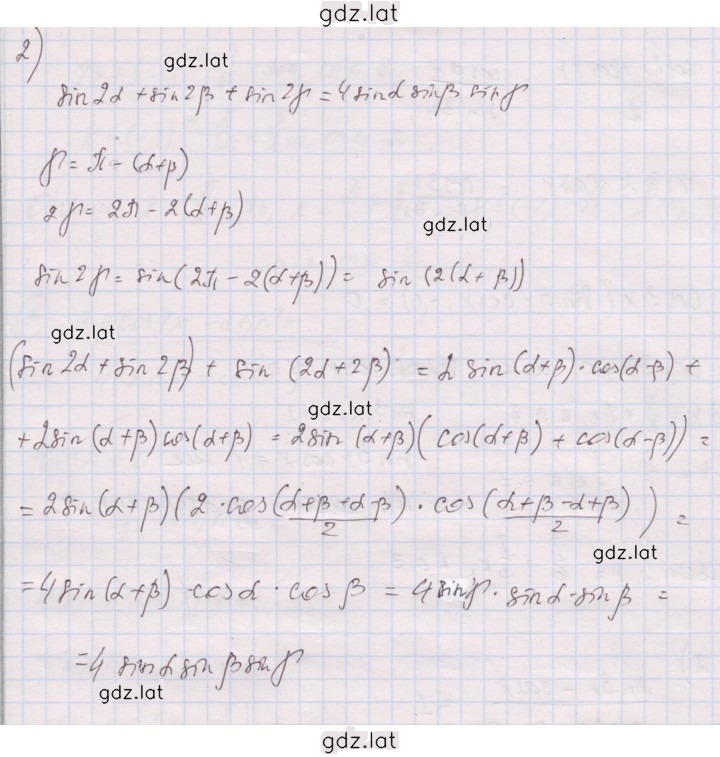 gdz.lat
2)
gdz.lat
sin2α + sin2β + sin2γ = 4sinα sinβ sinγ
γ = π - (α+β)
2γ = 2π - 2(α+β)
gdz.lat
sin2γ = sin(2π - 2(α+β)) = sin(2(α+β))
gdz.lat
(sin2α + sin2β) + sin (2α+2β) = 2 sin(α+β)·cos(α-β) +
gdz.lat
+ 2sin(α+β)cos(α+β) = 2sin(α+β)(cos(α+β) + cos(α-β)) =
= 2sin(α+β)(2·cos((α+β+α-β)/2)·cos((α+β-α+β)/2)) =
gdz.lat
= 4sin(α+β)·cosα·cosβ = 4sinγ·sinα·sinβ =
= 4 sinα sinβ sinγ
gdz.lat
gdz.lat